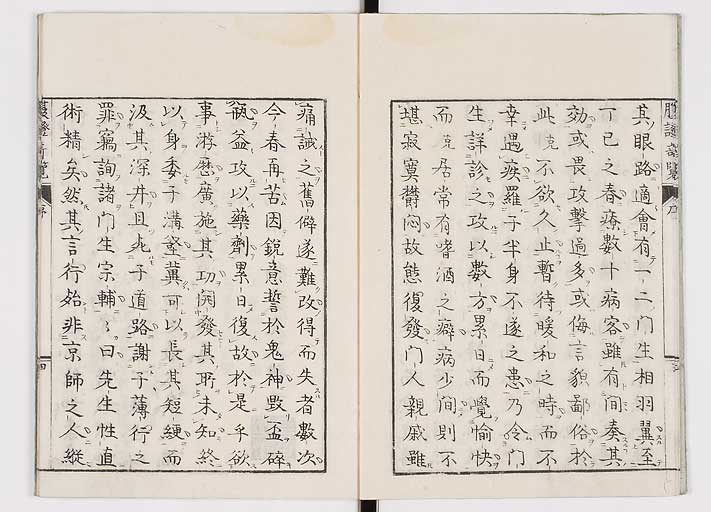 其眼路適會有一二門生相羽翼至
丁巳之春療數十病客雖有間奏其
効或畏攻擊過多或侮言貌鄙俗於
此克不欲久止暫待暖和之時而不
幸遇疾羅于半身不遂之患乃令門
生詳診之攻以數方累日而覺愉快
而克居常有嗜酒之癖病少間則不
堪寂寞欝悶故態復發門人親戚雖
痛誡之舊僻遂難改得而失者數次
今春再苦因銳意誓於鬼神毀盃碎
瓶益攻以藥劑累日復故於是乎欲
事游歷廣施其功開發其所未知終
以身委于溝壑冀可以長其短綆而
汲其深井且兆于道路謝于薄行之
罪竊詢諸門生宗輔〻曰先生性直
術精矣然其言行始非京師之人縱
腹證奇覽
序
四